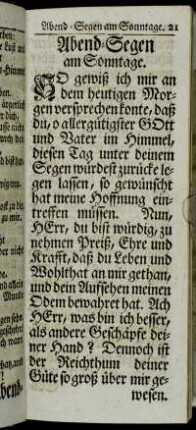 Abend-Segen am Sonntage. 21
Abend-Segen
am Sonntage.
SO gewiß ich mir an
dem heutigen Mor-
gen versprechen konte, daß
du, o allergütigster GOtt
und Vater im Himmel,
diesen Tag unter deinem
Segen würdest zurücke le-
gen lassen, so gewünscht
hat meine Hoffnung ein-
treffen müssen. Nun,
HErr, du bist würdig, zu
nehmen Preiß, Ehre und
Krafft, daß du Leben und
Wohlthat an mir gethan,
und dein Aufsehen meinen
Odem bewahret hat. Ach
HErr, was bin ich besser,
als andere Geschöpfe dei-
ner Hand? Dennoch ist
der Reichthum deiner
Güte so groß über mir ge-
wesen.